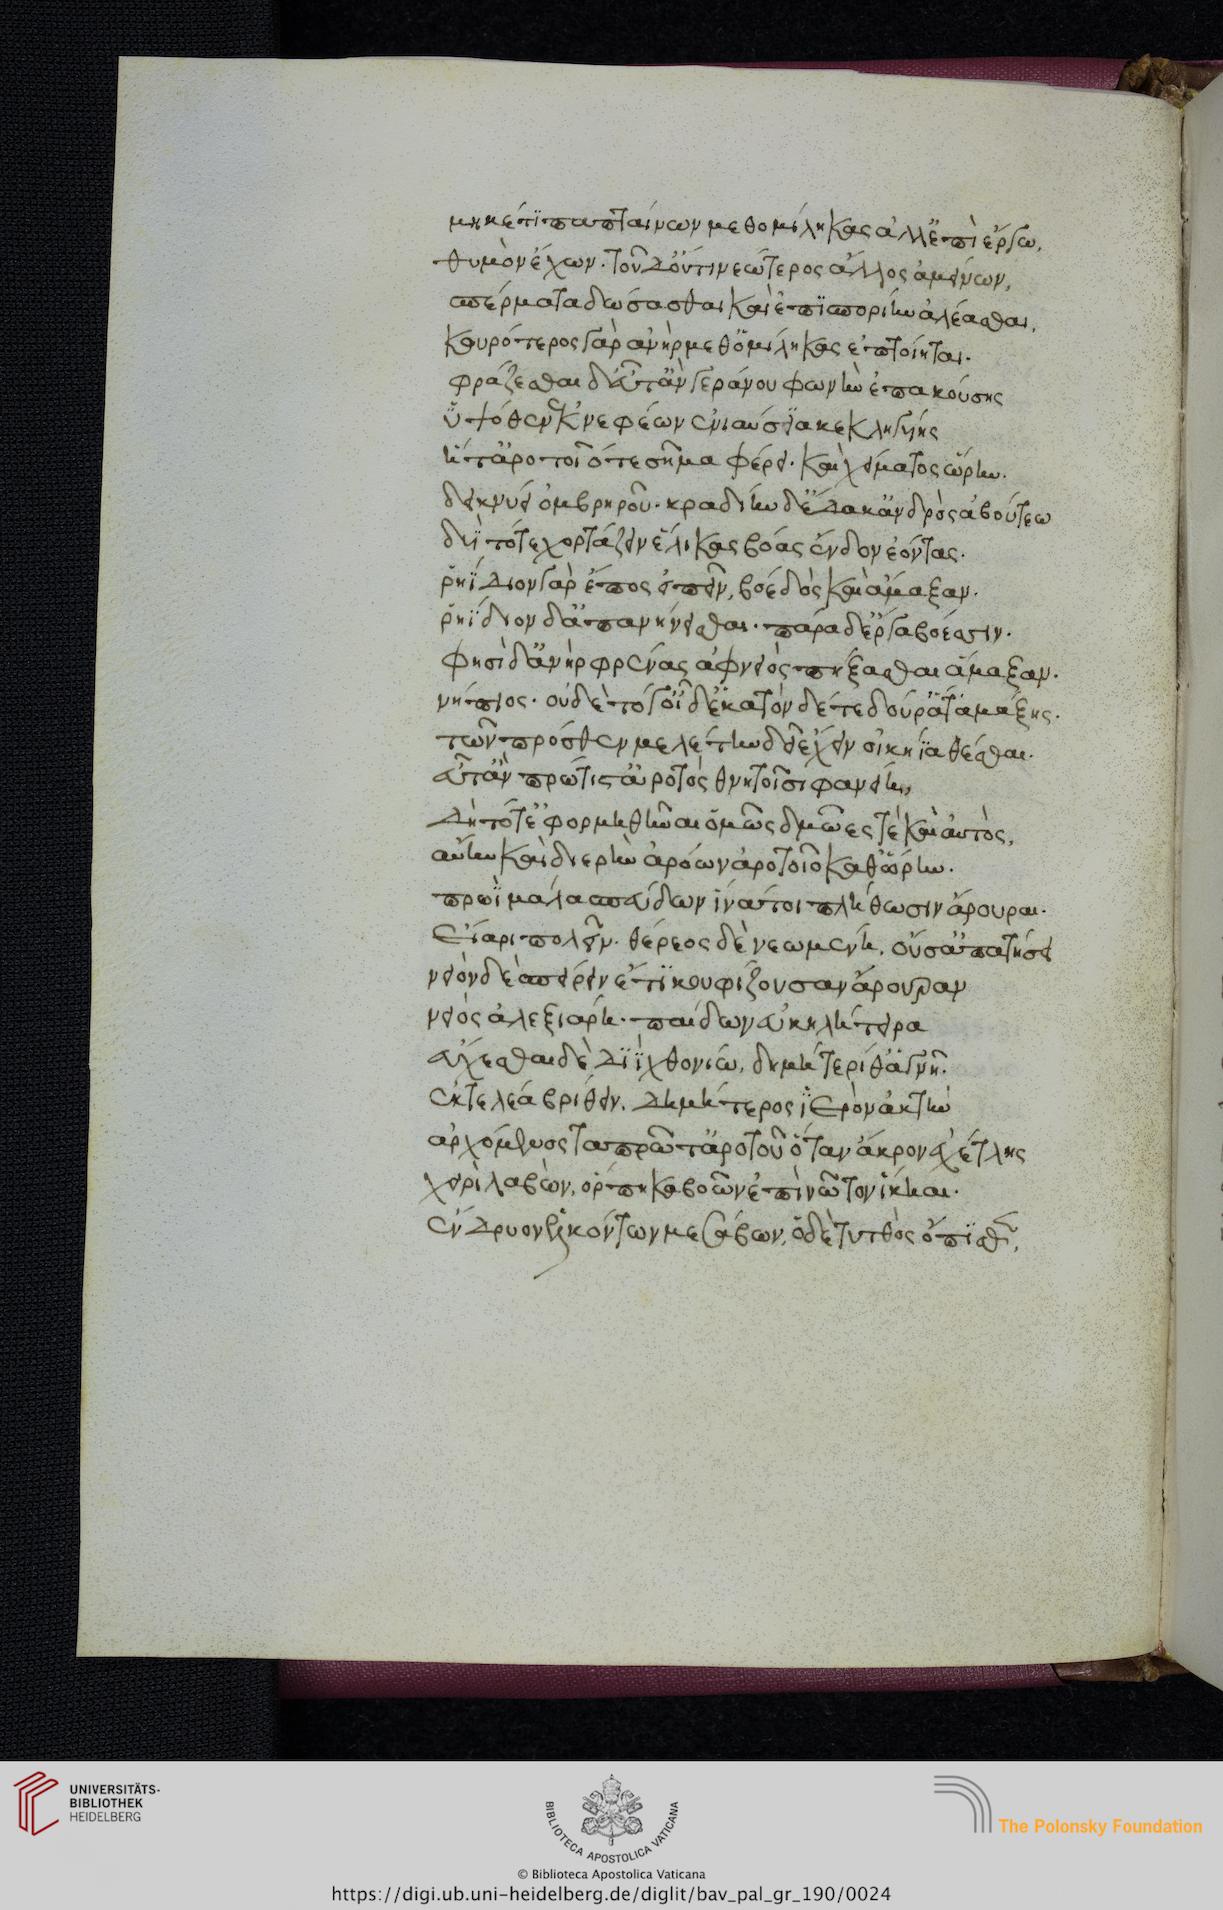 μηκέτι παπταίνων μεθ ὁμήλικας ἀλλ ἐπὶ ἔργω,
θυμὸν ἔχων. τοῦ δ οὔτι νεώτερος ἄλλος ἀμείνων,
σπέρματα δάσσασθαι καὶ ἐπισπορίην ἀλέασθαι,
κουρότερος γὰρ ἀνὴρ μεθ ὁμήλικας ἐπτοίηται.
φράζεσθαι δ εὖτ ἂν γεράνου φωνὴν ἐπακούσης
ὑψόθεν ἐκ νεφέων ἐνιαύσια κεκληγυίης
ἥτ ἀρότοιό τε σῆμα φέρει. καὶ χείματος ὥρην.
δεικνύει ὀμβρηροῦ. κραδίην δ ἔδακ ἀνδρὸς ἀβούτεω
δὴ τότε χορτάζειν ἕλικας βόας ἔνδον ἐόντας.
ῥηΐδιον γὰρ ἔπος εἰπεῖν, βόε δὸς καὶ ἅμαξαν.
ῥηΐδιον δ ἀπανήνεσθαι. πάρα δ ἔργα βόεσσιν.
φησὶ δ ἀνὴρ φρένας ἀφνειὸς πήξασθαι ἅμαξαν.
νήπιος. οὐδὲ τό γ οἶδ ἑκατὸν δέ τε δούρατ ἁμάξης.
τῶν πρόσθεν μελέτην δ ἐχέμεν οἰκήϊα θέσθαι.
εὖτ ἂν πρώτιστ ἄροτος θνητοῖσι φανείη,
δὴ τότ ἐφορμηθῆναι ὁμῶς δμῶές τε καὶ αὐτὸς,
αὔην καὶ διερὴν ἀρόων ἀρότοιο καθ ὥρην.
πρωῒ μάλα σπεύδων ἵνα τοι πλήθωσιν ἄρουραι.
εἴαρι πολεῖν. θέρεος δὲ νεωμένη, οὔ σ ἀπατήσει
νειὸν δὲ σπείρειν ἔτι κουφίζουσαν ἄρουραν
νειὸς ἀλεξιάρη. παίδων εὐκηλήτειρα
εὔχεσθαι δὲ Διῒ χθονίω, δημήτερι θ ἁγνῆ.
ἐκτελέα βρίθειν, Δημήτερος ἱερὸν ἀκτὴν
ἀρχόμενος τὰ πρῶτ ἀρότου ὅταν ἄκρον ἐχέτλης
χειρὶ λαβὼν, ὅρπηκα βοῶν ἐπὶ νῶτον ἵκηαι.
ἔνδρυον ἑλκόντων μεσάβων, ὁ δὲ τυτθὸς ὄπισθεν,
UNIVERSITÄTS-
BIBLIOTHEK
HEIDELBERG
BIBLIOTECA APOSTOLICA VATICANA
The Polonsky Foundation
© Biblioteca Apostolica Vaticana
https://digi.ub.uni-heidelberg.de/diglit/bav_pal_gr_190/0024